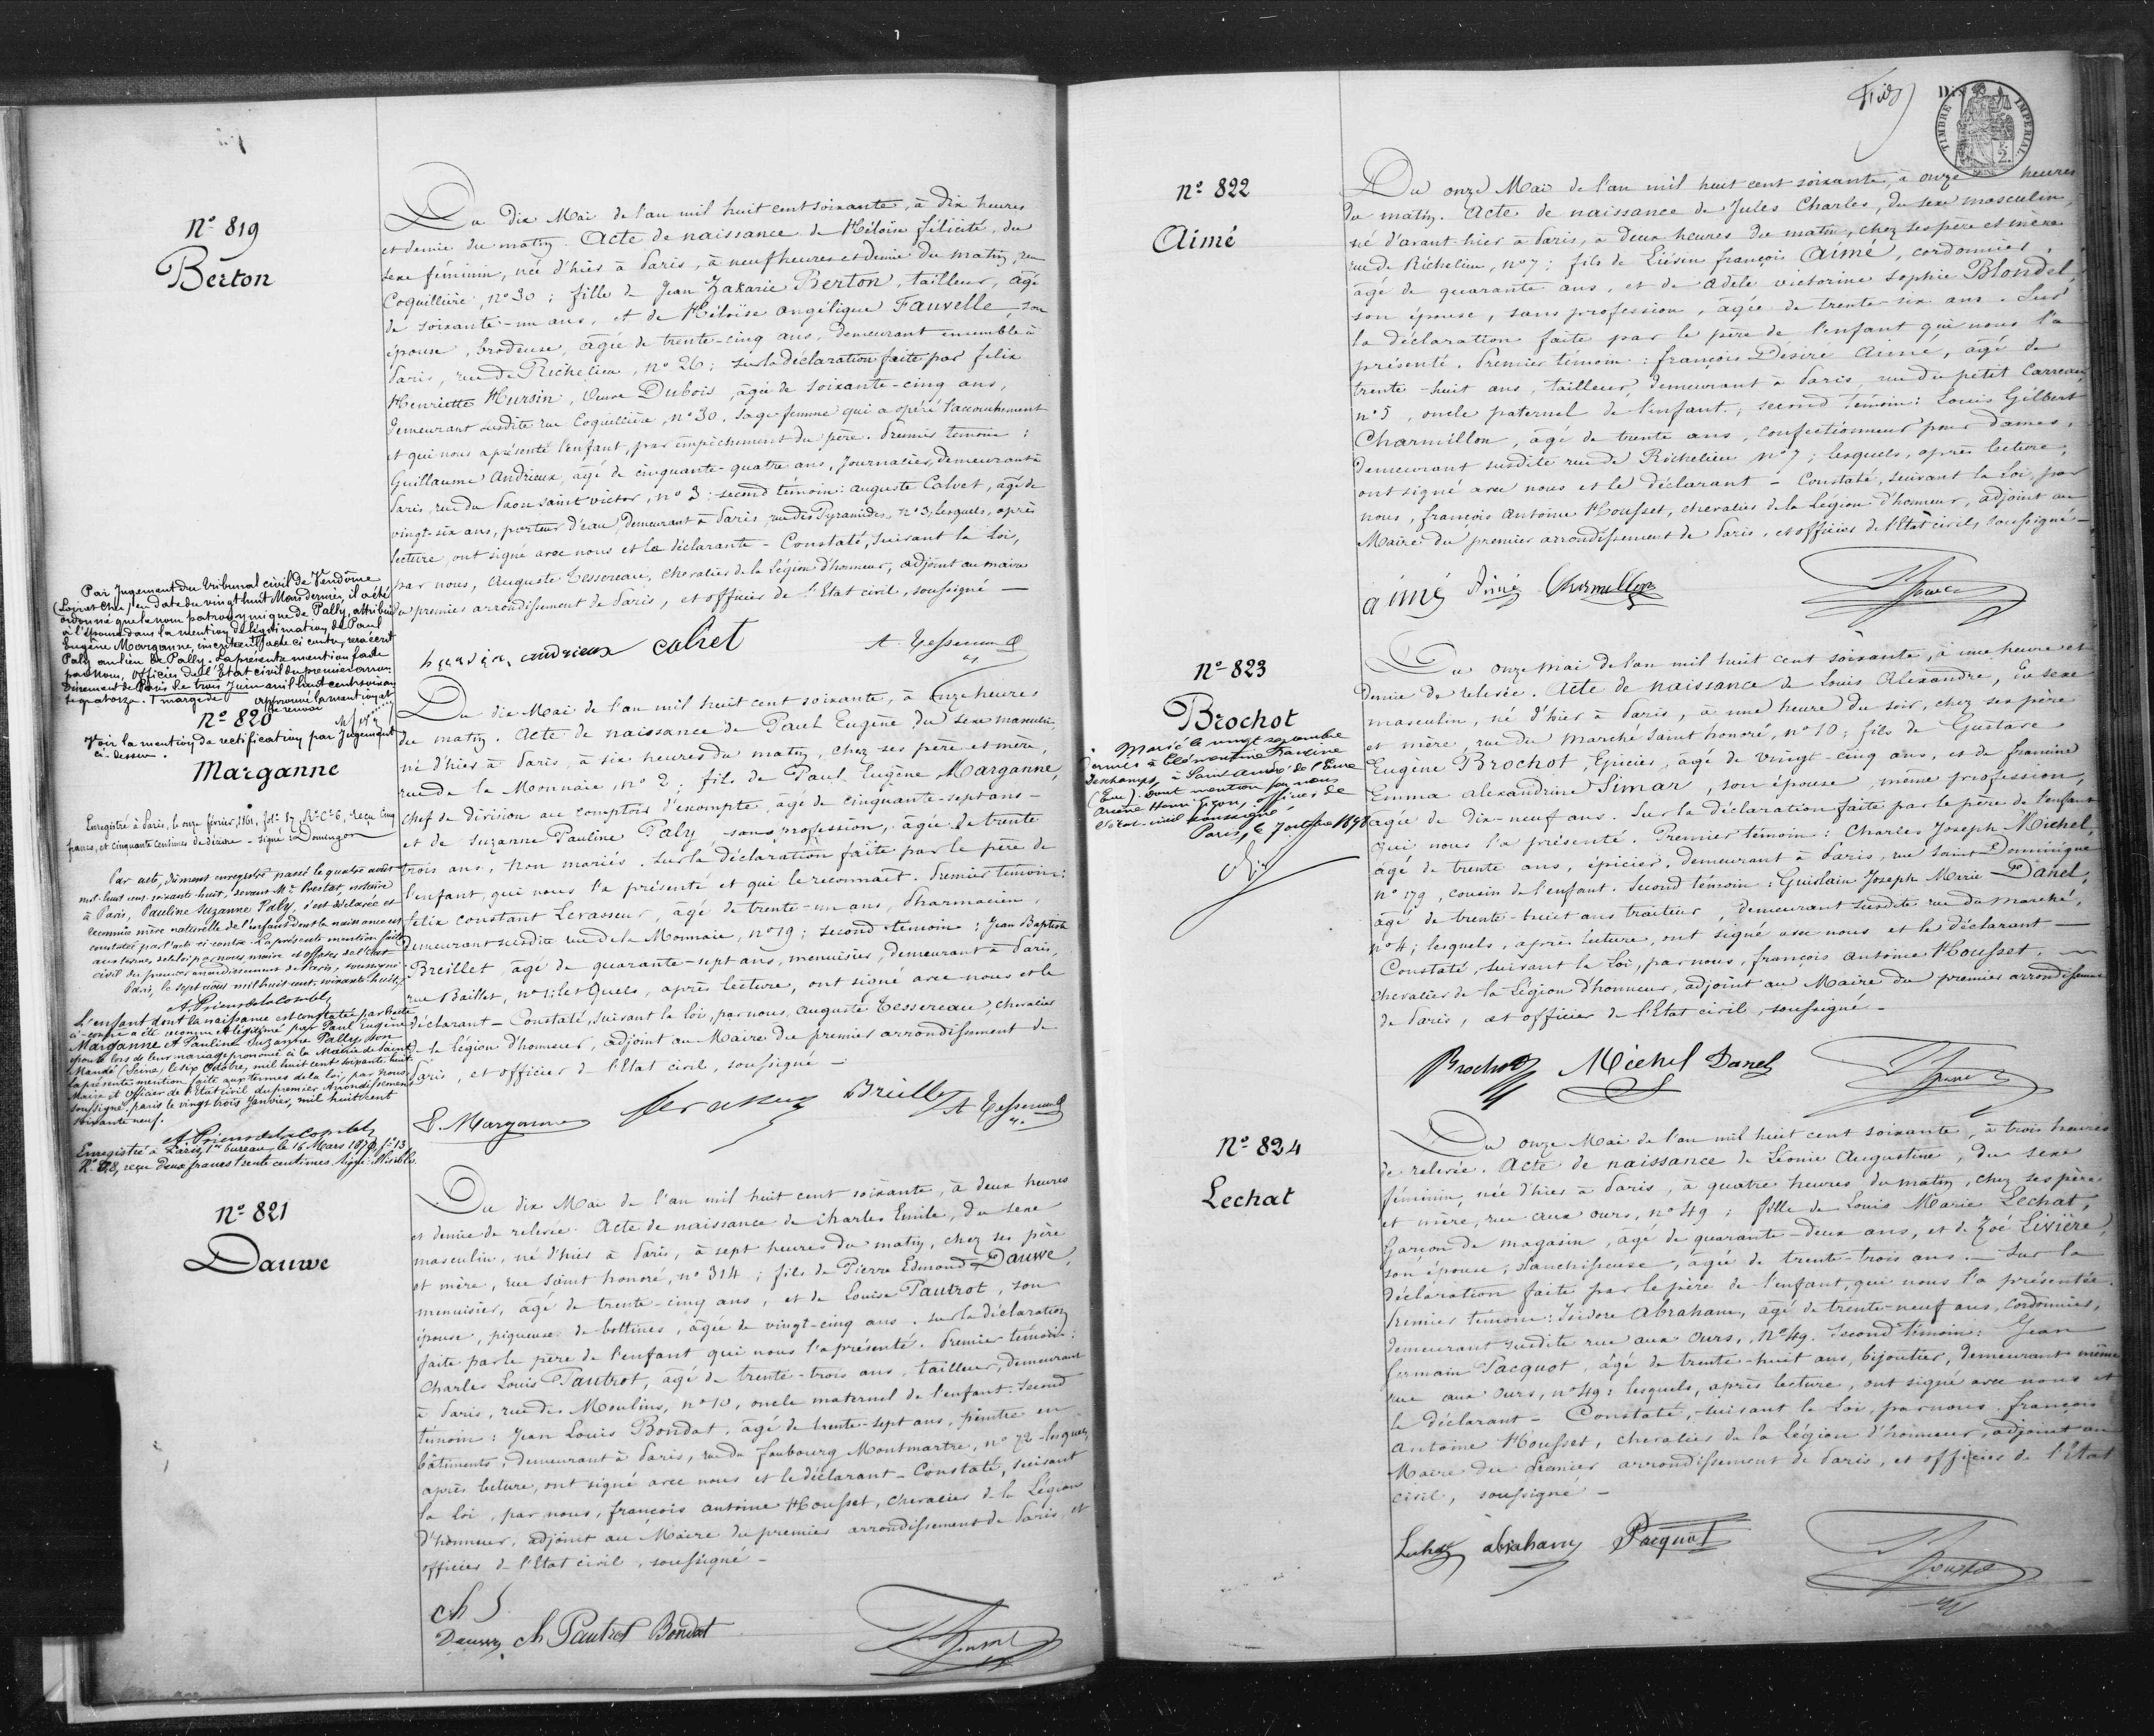 Nº 819
Berton
Du dix Mai de l'an mil huit cent soixante, à dix heures
et demie du matin. Acte de naissance de Héloïse félicité, du
sexe féminin, née d'hier à Paris, à neuf heures et demie du matin, rue
Coquillière, nº 30 ; fille de Jean Zakarie Berton, tailleur, âgé
de soixante-un ans, et de Héloïse angélique Fauvelle, son
épouse, brodeuse, âgée de trente-cinq ans, demeurant ensemble à
Paris, rue de Richelieu, nº 26 ; sur la déclaration faite par felix
Henriette Hursin, Veuve Dubois, âgée de soixante-cinq ans,
demeurant susdite rue Coquillière, nº 30, sage-femme qui a opéré l'accouchement
et qui nous a présenté l'enfant, par empêchement du père. Premier témoin :
Guillaume Andrieux, âgé de cinquante-quatre ans, Journalier, demeurant à
Paris, rue du Paon saint victor, nº 3 ; second témoin : auguste Calvet, âgé de
vingt-six ans, porteur d'eau, demeurant à Paris, rue des Pyramides, nº 3, lesquels, après
lecture, ont signé avec nous et la déclarante - Constaté, suivant la Loi,
par nous, Auguste Tessereau, chevalier de la Légion d'honneur, adjoint au maire
du premier arrondissement de Paris, et officier de l'Etat civil, soussigné —
hursin andrieux calvet A. Tessereau
Par Jugement du tribunal civil de Vendôme
(Loir et Cher) en date du vingt huit Mars dernier, il a été
ordonné que le nom patronymique de Pally, attribué
à l'épouse dans la mention de légitimation de Paul
Eugène Marganne, inscrite en l'acte ci contre, sera écrit
Paly au lieu de Pally. La présente mention faite
par Nous, Officier de l'Etat civil du premier arron-
dissement de Paris le trois Juin mil huit cent soixan-
te quatorze.
Approuvé la mention et
le renvoi
Nº 820
Voir la mention de rectification par Jugement
ci-dessus.
Marganne
Enregistré à Paris, le onze février 1861, fol. 87, Rº Cº 6, Reçu Cinq
francs, et cinquante centimes de décime - signé : Domingon
Par acte, dûment enregistré passé le quatre août
mil-huit cent-soixante-huit, devant Me Prestat, notaire
à Paris, Pauline Suzanne Paly, s'est déclarée et
reconnue mère naturelle de l'enfant dont la naissance est
constatée par l'acte ci-contre. La présente mention faite
aux termes de la loi par nous maire et officier de l'état
civil du premier arrondissement de Paris, soussigné
Paris, le sept août mil huit cent soixante-huit.
L'enfant dont la naissance est constatée par l'acte
ci-contre a été reconnu et légitimé par Paul Eugène
Marganne et Pauline Suzanne Pally, son
épouse lors de leur mariage prononcé à la Mairie de Saint
Mandé (Seine), le six Octobre, mil huit cent soixante huit.
La présente mention faite aux termes de la loi, par nous
Maire et Officier de l'Etat civil du premier Arrondissement
soussigné. paris le vingt trois Janvier, mil huit cent
soixante neuf.
Enregistré à Paris, 1er bureau, le 16 Mars 1870, fº 13
Rº C. 8, reçu Deux francs trente centimes. Signé : Illisible.
Du dix Mai de l'an mil huit cent soixante, à onze heures
du matin. Acte de naissance de Paul Eugène du sexe masculin
né d'hier à Paris, à six heures du matin, chez ses père et mère,
rue de la Monnaie, nº 2 ; fils de Paul Eugène Marganne,
chef de division au comptoir d'escompte, âgé de cinquante-sept ans -
et de Suzanne Pauline Paly sans profession, âgée de trente
trois ans, non mariés. Sur la déclaration faite par le père de
l'enfant, qui nous l'a présenté et qui le reconnaît. Premier témoin :
félix constant Levasseur, âgé de trente-un ans, Pharmacien,
demeurant susdite rue de la Monnaie, nº 19 ; second témoin : Jean Baptiste
Breillet, âgé de quarante-sept ans, menuisier, demeurant à Paris,
rue Baillet, nº 1; lesquels, après lecture, ont signé avec nous et le
déclarant - Constaté, suivant la Loi, par nous, Auguste Tessereau, chevalier
de la Légion d'honneur, adjoint au Maire du premier arrondissement de
Paris, et officier de l'Etat civil, soussigné —
E. Marganne Levasseur Breillet A Tessereau
Nº 821
Dauwe
Du dix Mai de l'an mil huit cent soixante, à deux heures
et demie de relevée. Acte de naissance de Charles Emile, du sexe
masculin, né d'hier à Paris, à sept heures du matin, chez ses père
et mère, rue saint honoré, nº 314 ; fils de Pierre Edmond Dauwe,
menuisier, âgé de trente-cinq ans, et de Louise Pautrot, son
épouse, piqueuse de bottines, âgée de vingt-cinq ans. Sur la déclaration
faite par le père de l'enfant qui nous l'a présenté. Premier témoin :
Charles Louis Pautrot, âgé de trente-trois ans, tailleur, demeurant
à Paris, rue des Moulins, nº 10, oncle maternel de l'enfant. Second
témoin : Jean Louis Bondat, âgé de trente-sept ans, peintre en
bâtiments, demeurant à Paris, rue du faubourg Montmartre, nº 72 - lesquels,
après lecture, ont signé avec nous et le déclarant - Constaté, suivant
la Loi, par nous, françois antoine Housset, chevalier de la Légion
d'honneur, adjoint au Maire du premier arrondissement de Paris, et
officier de l'Etat civil, soussigné -
Dauwe ch Pautrot Bondat
TIMBRE IMPERIAL
Nº 822
Aimé
Du onze Mai de l'an mil huit cent soixante, à onze heures
du matin. Acte de naissance de Jules Charles, du sexe masculin,
né d'avant-hier à Paris, à deux heures du matin, chez ses père et mère
rue de Richelieu, nº 7 ; fils de Liésin françois Aimé, cordonnier,
âgé de quarante ans, et de adele victorine sophie Blondel,
son épouse, sans profession, âgée de trente-six ans. Sur
la déclaration faite par le père de l'enfant qui nous l'a
présenté. Premier témoin : françois Désiré Aimé, âgé de
trente-huit ans, tailleur, demeurant à Paris, rue du petit Carreau,
nº 5, oncle paternel de l'enfant ; second témoin : Louis Gilbert
Charmillon, âgé de trente ans, confectionneur pour dames,
demeurant susdite rue de Richelieu nº 7 ; lesquels, après lecture,
ont signé avec nous et le déclarant - Constaté, suivant la Loi, par
nous, françois Antoine Housset, chevalier de la Légion d'honneur, adjoint au
Maire du premier arrondissement de Paris, et officier de l'Etat civil, soussigné -
aimé Aimé Charmillon
Nº 823
Brochot
Marié le vingt septembre
dernier à Clémentine Francine
Deschamps, à Saint André de l'Eure
(Eure). Dont mention par nous
officier de
l'état-civil soussigné
Paris, le 7 octobre 1898
Du onze mai de l'an mil huit cent soixante, à une heure et
demie de relevée. Acte de naissance de Louis Alexandre, du sexe
masculin, né d'hier à Paris, à une heure du soir, chez ses père
et mère, rue du Marché Saint honoré, nº 10 ; fils de Gustave
Eugène Brochot, Epicier, âgé de vingt-cinq ans, et de francine
Emma alexandrine Simar, son épouse, même profession,
âgée de dix-neuf ans. Sur la déclaration faite par le père de l'enfant
qui nous l'a présenté. Premier témoin : Charles Joseph Michel,
âgé de trente ans, épicier, demeurant à Paris, rue Saint Dominique
nº 179, cousin de l'enfant. Second témoin : Guislain Joseph Marie Danel,
âgé de trente-huit ans traiteur, demeurant susdite rue du marché,
nº 4 ; lesquels, après lecture, ont signé avec nous et le déclarant —
Constaté, suivant la Loi, par nous, françois antoine Housset,
chevalier de la Légion d'honneur, adjoint au Maire du premier arrondissement
de Paris, et officier de l'Etat civil, soussigné -
Brochot Michel Danel
Nº 824
Lechat
Du onze Mai de l'an mil huit cent soixante, à trois heures
de relevée. Acte de naissance de Léonie Augustine, du sexe
féminin, née d'hier à Paris, à quatre heures du matin, chez ses père
et mère, rue aux ours, nº 49 ; fille de Louis Marie Lechat,
Garçon de magasin, âgé de quarante-deux ans, et de Zoé Livière,
son épouse, blanchisseuse, âgée de trente-trois ans. — Sur la
déclaration faite par le père de l'enfant, qui nous l'a présentée.
Premier témoin : Isidore Abraham, âgé de trente-neuf ans, cordonnier,
demeurant susdite rue aux ours, nº 49. Second témoin : Jean
Germain Pacquot, âgé de trente-huit ans, bijoutier, demeurant même
rue aux ours, nº 49 ; lesquels, après lecture, ont signé avec nous et
le déclarant - Constaté, suivant la Loi, par nous françois
antoine Housset, chevalier de la Légion d'honneur, adjoint au
Maire du Premier arrondissement de Paris, et officier de l'état
civil, soussigné -
Lechat abraham Pacquot